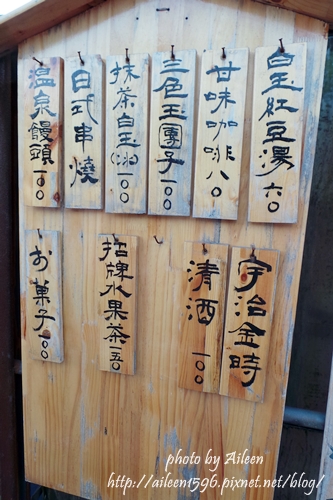 白玉紅豆湯 六〇
甘味咖啡 八〇
三色玉團子 一〇〇
抹茶白玉(冰) 一〇〇
日式串燒
溫泉饅頭 一〇〇
宇治金時
清酒 一〇〇
招牌水果茶 一五〇
お菓子 一〇〇
photo by Aileen
http://aileen1596.pixnet.net/blog/